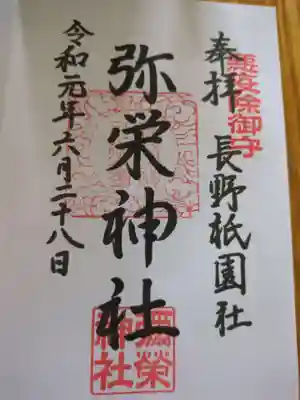 奉拝
長野祇園社
弥栄神社
彌榮神社
令和元年六月二十八日